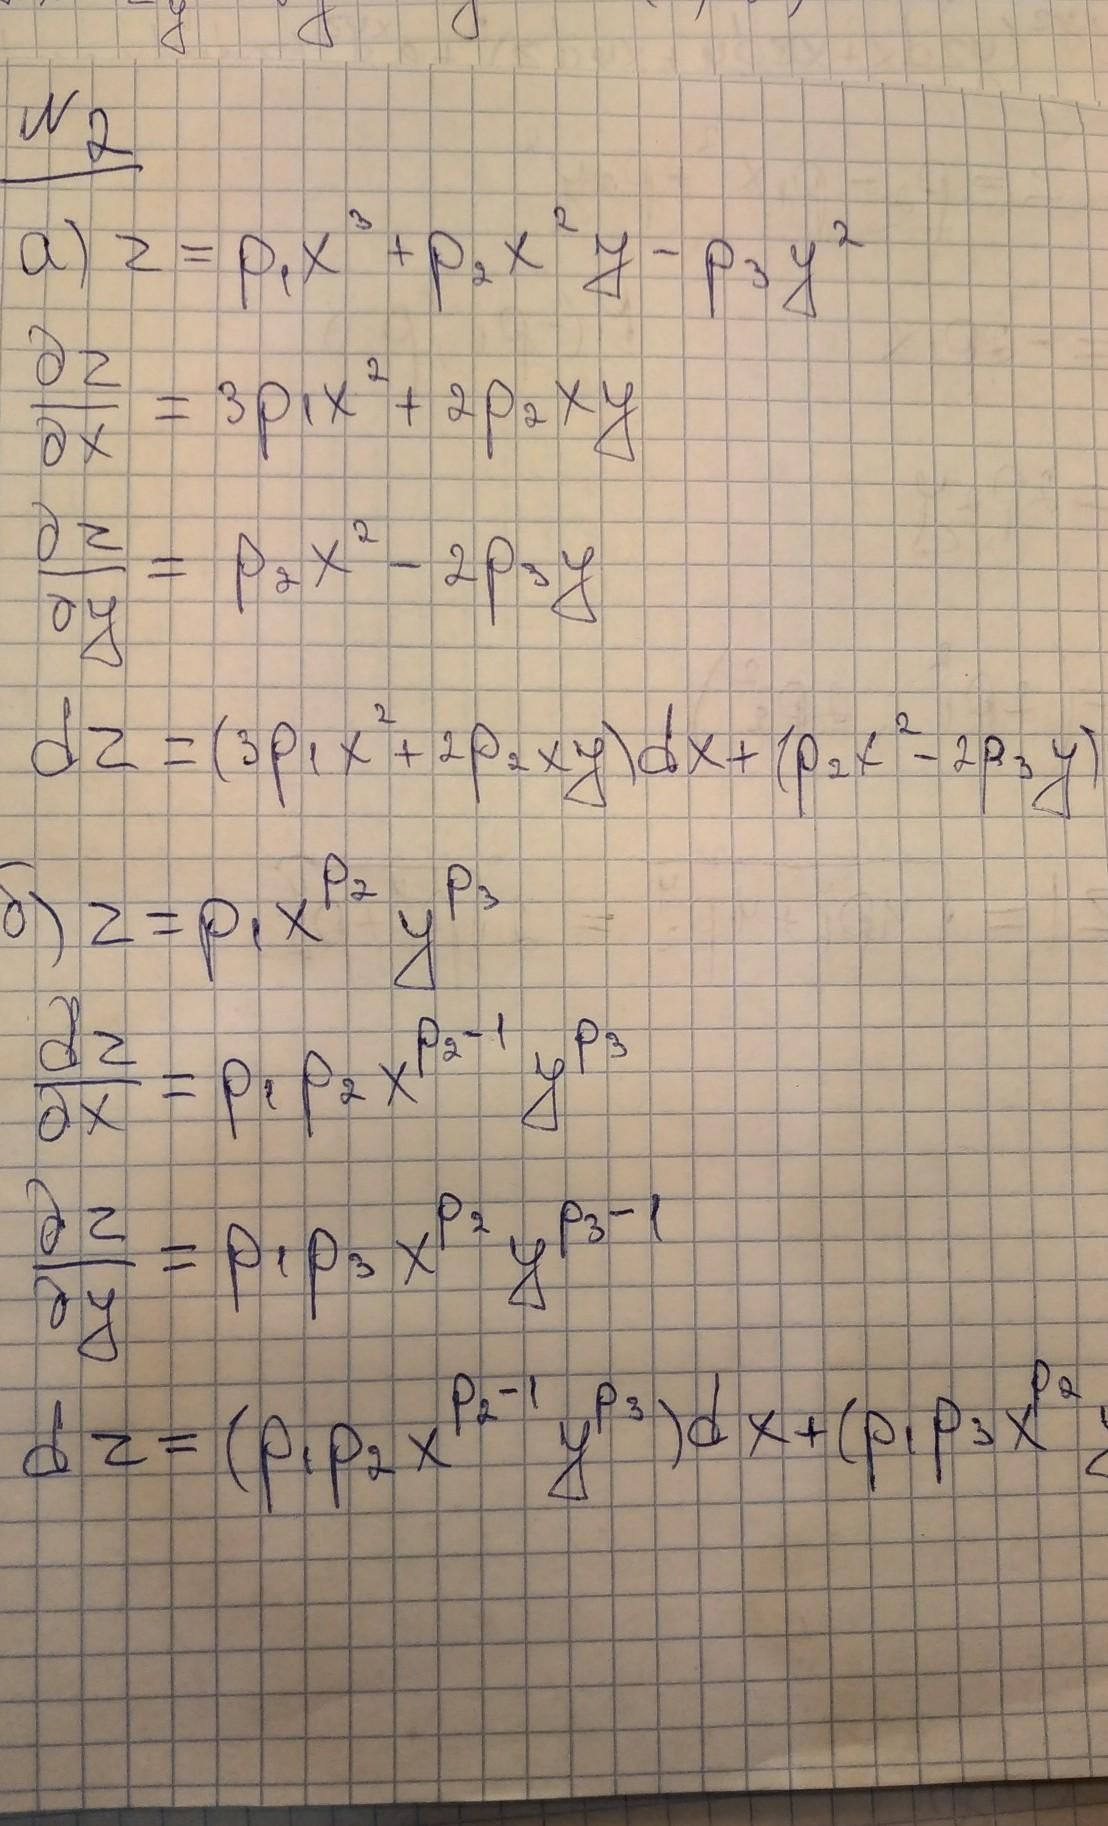 N2
а) z = p₁x³ + p₂x²y - p₃y²
∂z/∂x = 3p₁x² + 2p₂xy
∂z/∂y = p₂x² - 2p₃y
dz = (3p₁x² + 2p₂xy)dx + (p₂x² - 2p₃y)
б) z = p₁x^p₂ y^p₃
∂z/∂x = p₁p₂x^(p₂-1) y^p₃
∂z/∂y = p₁p₃x^p₂ y^(p₃-1)
dz = (p₁p₂x^(p₂-1) y^p₃)dx + (p₁p₃x^p₂ y